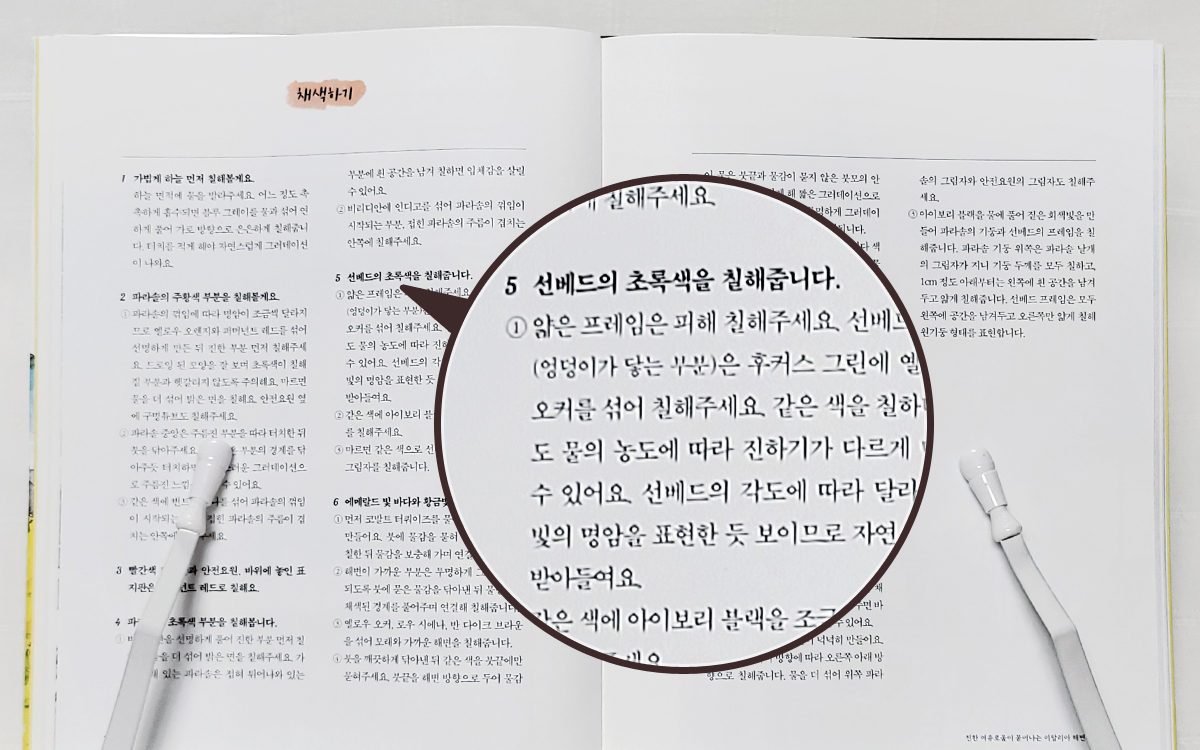 채색하기
1 가볍게 하늘 먼저 칠해볼게요.
하늘 면적에 물을 발라주세요. 어느 정도 촉
촉하게 흡수되면 블루 그레이를 물과 섞어 연
하게 풀어 가로 방향으로 은은하게 칠해줍니
다. 터치를 적게 해야 자연스럽게 그러데이션
이 나와요.
2 파라솔의 주황색 부분을 칠해볼게요.
① 파라솔의 꺾임에 따라 명암이 조금씩 달라지
므로 옐로우 오렌지와 퍼머넌트 레드를 섞어
선명하게 만든 뒤 진한 부분 먼저 칠해주세
요. 드로잉 된 모양을 잘 보며 초록색이 칠해
질 부분과 헷갈리지 않도록 주의해요. 마르면
물을 더 섞어 밝은 면을 칠해요. 안전요원 옆
에 구명튜브도 칠해주세요.
② 파라솔 중앙은 주름진 부분을 따라 터치한 뒤
붓을 닦아주세요. 부분의 경계를 닦
아주듯 터치하면 러운 그러데이션으
로 주름진 느낌 수 있어요.
③ 같은 색에 번트 를 섞어 파라솔의 꺾임
이 시작되는 접힌 파라솔의 주름이 겹
치는 안쪽에 세요.
3 빨간색 과 안전요원, 바위에 놓인 표
지판은 넌트 레드로 칠해요.
4 초록색 부분을 칠해봅니다.
① 을 선명하게 풀어 진한 부분 먼저 칠
을 더 섞어 밝은 면을 칠해주세요. 가
있는 파라솔은 접혀 튀어나와 있는
부분에 흰 공간을 남겨 칠하면 입체감을 살릴
수 있어요.
② 비리디안에 인디고를 섞어 파라솔의 꺾임이
시작되는 부분, 접힌 파라솔의 주름이 겹치는
안쪽에 칠해주세요.
5 선베드의 초록색을 칠해줍니다.
① 얇은 프레임은 칠해주세요.
(엉덩이가 닿는 부분)
오커를 섞어 칠해주세요.
도 물의 농도에 따라 진하
수 있어요. 선베드의 각
빛의 명암을 표현한 듯
받아들여요.
② 같은 색에 아이보리 블
를 칠해주세요.
③ 마르면 같은 색으로 선
그림자를 칠해줍니다.
6 에메랄드 빛 바다와 황금빛
① 먼저 코발트 터쿼이즈를 물
만들어요. 붓에 물감을 묻혀
칠한 뒤 물감을 보충해 가며 연결
② 해변이 가까운 부분은 투명하게
되도록 붓에 묻은 물감을 닦아낸 뒤 물
채색된 경계를 풀어주며 연결해 칠해줍니다.
③ 옐로우 오커, 로우 시에나, 반 다이크 브라운
을 섞어 모래와 가까운 해변을 칠해줍니다.
④ 붓을 깨끗하게 닦아낸 뒤 같은 색을 붓끝에만
묻혀주세요. 붓끝을 해변 방향으로 두어 물감
칠해주세요.
5 선베드의 초록색을 칠해줍니다.
① 얇은 프레임은 피해 칠해주세요. 선베드
(엉덩이가 닿는 부분)은 후커스 그린에 옐
오커를 섞어 칠해주세요. 같은 색을 칠하
도 물의 농도에 따라 진하기가 다르게
수 있어요. 선베드의 각도에 따라 달라
빛의 명암을 표현한 듯 보이므로 자연
받아들여요.
같은 색에 아이보리 블랙을 조금
세요.
붓끝과 물감이 묻지 않은 붓모의 안
해 짧은 그러데이션으로
명하게 그러데이
됩니다.
색
면 바
수 있어요.
넉넉히 만들어요.
방향에 따라 오른쪽 아래 방
향으로 칠해줍니다. 물을 더 섞어 위쪽 파라
솔의 그림자와 안전요원의 그림자도 칠해주
세요.
③ 아이보리 블랙을 물에 풀어 짙은 회색빛을 만
들어 파라솔의 기둥과 선베드의 프레임을 칠
해줍니다. 파라솔 기둥 위쪽은 파라솔 날개
의 그림자가 지니 기둥 두께를 모두 칠하고,
1cm 정도 아래부터는 왼쪽에 흰 공간을 남겨
두고 얇게 칠해줍니다. 선베드 프레임은 모두
왼쪽에 공간을 남겨두고 오른쪽만 얇게 칠해
원기둥 형태를 표현합니다.
진한 여유로움이 묻어나는 이탈리아 해변